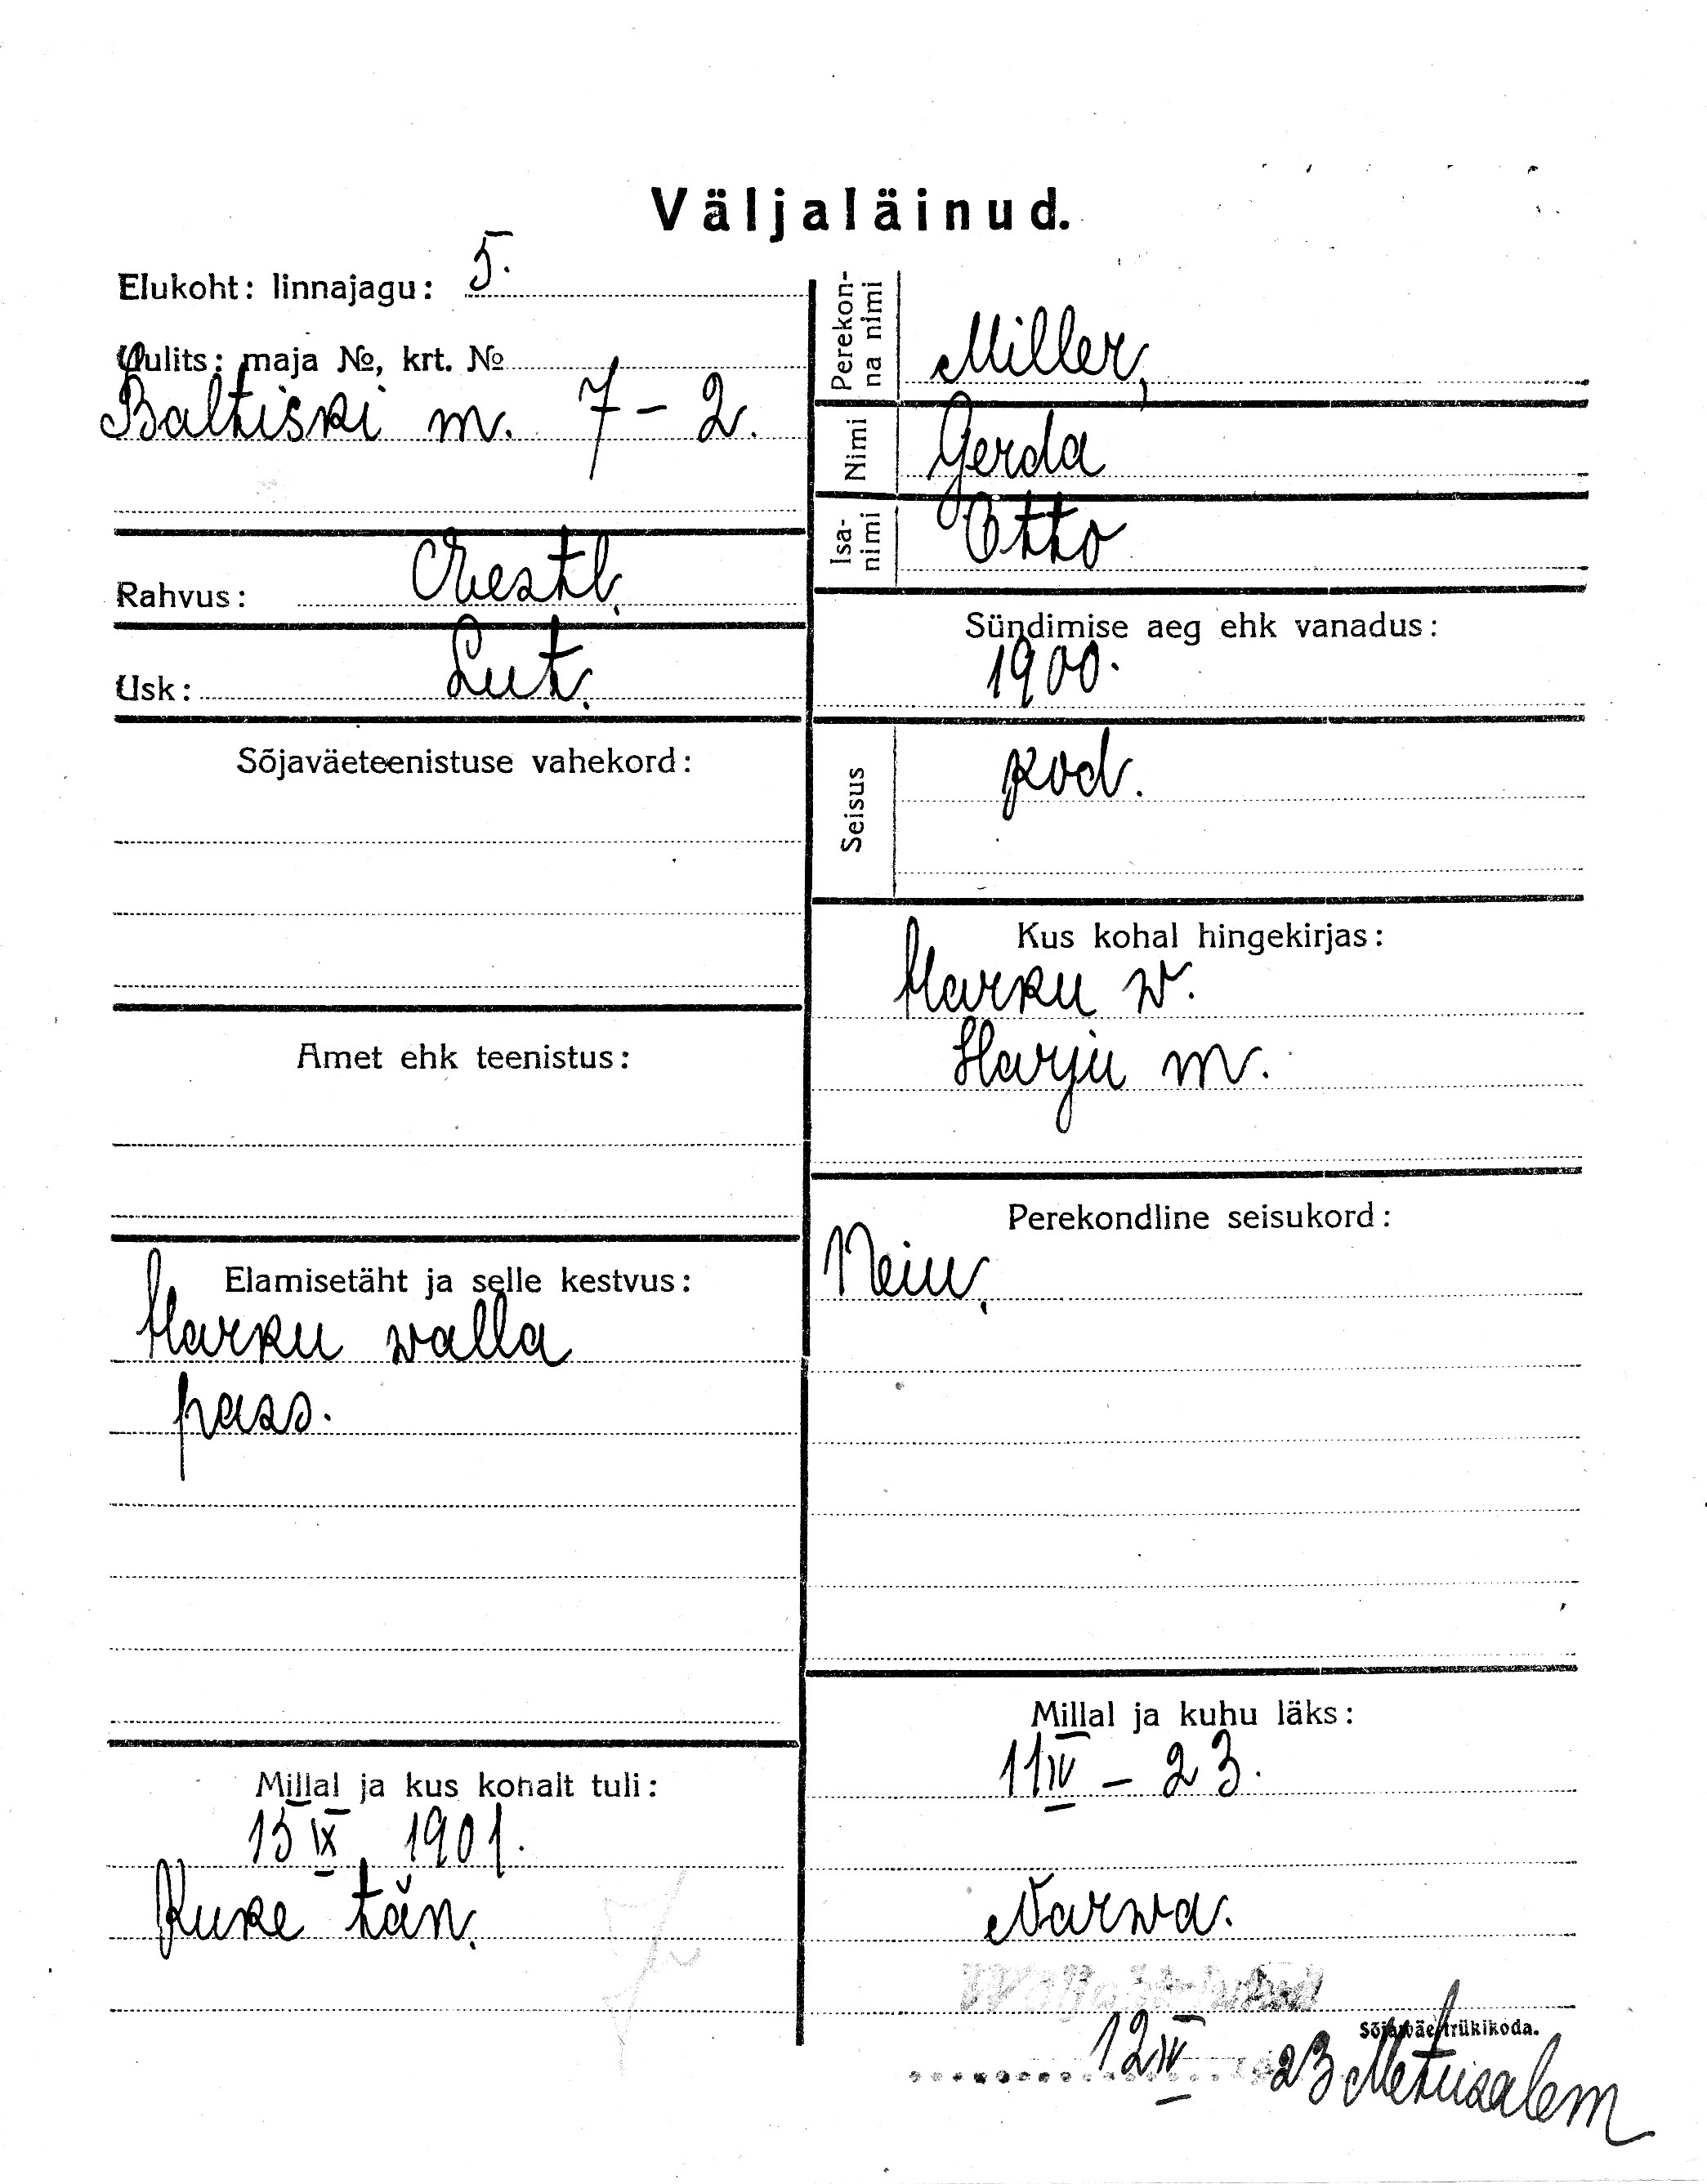 Väljaläinud.
Elukoht: linnajagu: 5.
Uulits: maja №, krt. №
Baltiski m. 7 - 2.
Rahvus: Eestl.
Usk: Lut.
Sõjaväeteenistuse vahekord:
Amet ehk teenistus:
Elamisetäht ja selle kestvus:
Harku walla
pass.
Millal ja kus kohalt tuli:
15 IX 1901.
Kuke tän.
Perekon-
na nimi
Miller,
Nimi
Gerda
Isa-
nimi
Otto
Sündimise aeg ehk vanadus:
1900.
Seisus
kod.
Kus kohal hingekirjas:
Harku w.
Harju m.
Perekondline seisukord:
Neiu.
Millal ja kuhu läks:
11 IV - 23.
Narwa.
Sõjawäe trükikoda.
12 IV 23 Metusalem